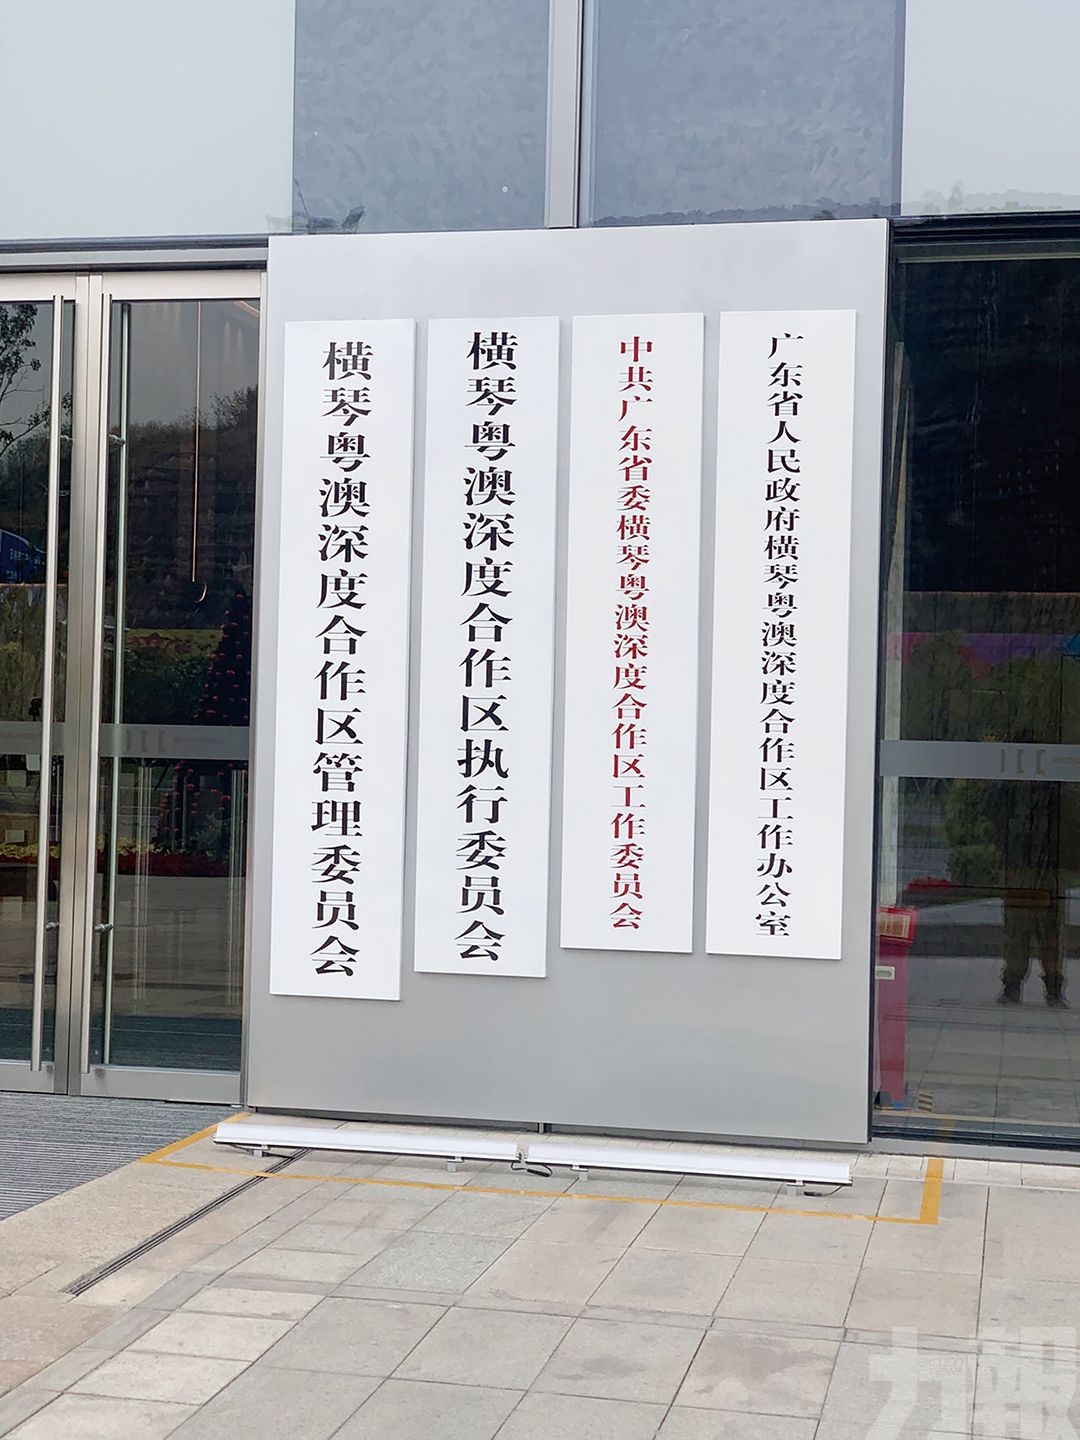 横琴粤澳深度合作区管理委员会
横琴粤澳深度合作区执行委员会
中共广东省委横琴粤澳深度合作区工作委员会
广东省人民政府横琴粤澳深度合作区工作办公室
力報